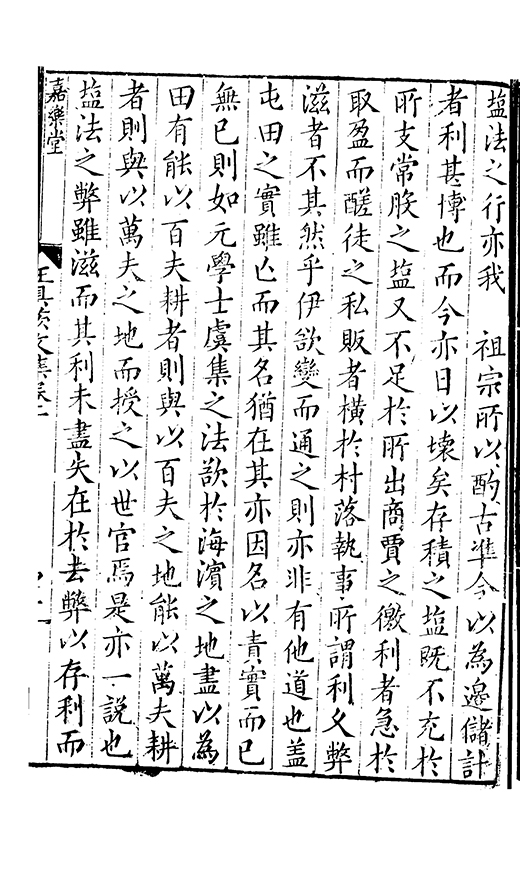 塩法之行亦我　祖宗所以酌古準今以為邊儲計
者利甚博也而今亦日以壞矣存積之塩既不充於
所支常股之塩又不足於所出商賈之徼利者急於
取盈而醝徒之私販者橫於村落執事所謂利久弊
滋者不其然乎伊欲變而通之則亦非有他道也盖
屯田之實雖亾而其名猶在其亦因名以責實而已
無已則如元學士虞集之法欲於海濱之地盡以為
田有能以百夫耕者則與以百夫之地能以萬夫耕
者則與以萬夫之地而授之以世官焉是亦一說也
塩法之弊雖滋而其利未盡失在於去弊以存利而
嘉樂堂
文集卷二